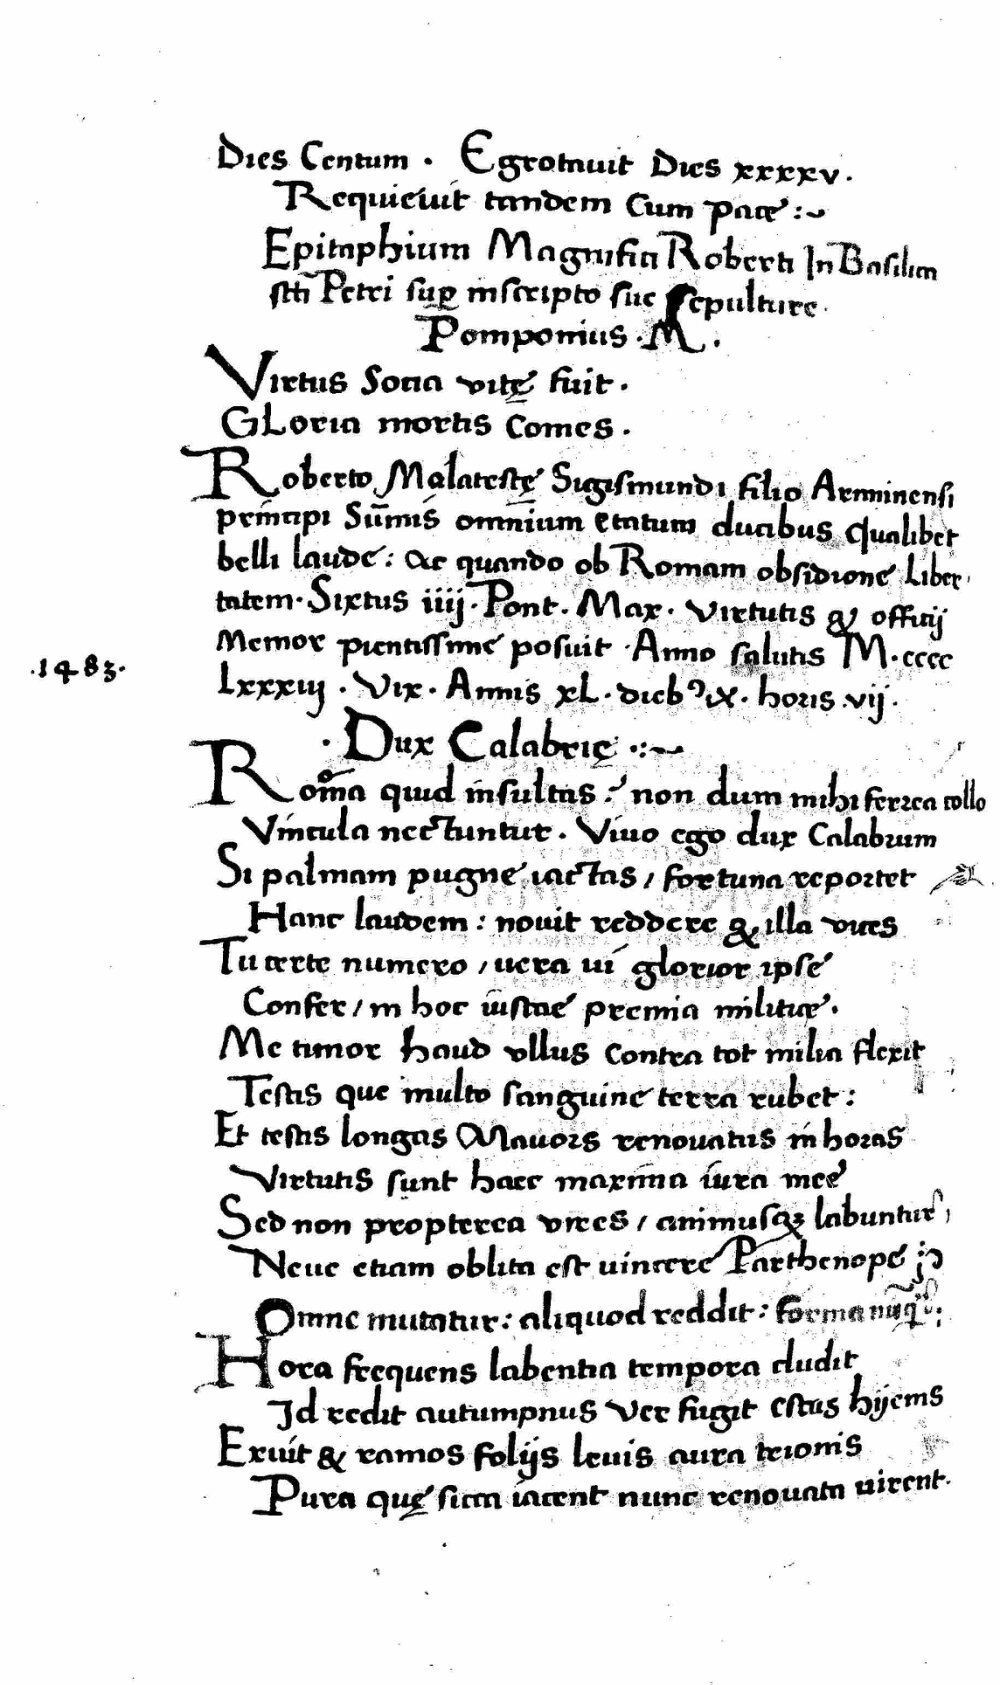 Dies Centum . Egrotauit Dies xxxxv .
Requieuit tandem Cum pace :~
Epitaphium Magnifici Roberti In Basilica
scti Petri sup inscripto sue sepulture .
Pomponius . M .
Virtus Socia vitę fuit .
GLoria mortis Comes .
Roberto Malatestę Sigismundi filio Arminensi
principi Sūmis omnium etatum ducibus Qualibet
belli laude : ac quando ob Romam obsidione Liber
tatem . Sixtus iiij . Pont . Max . virtutis & offitij
Memor pientissime posuit . Anno salutis M . cccc
.1483.
Lxxxiij . Vix . Annis xL . dieb9 ix . horis . vij .
. Dux Calabrię .:~
Roma quid insultas ? non dum mihi ferrea collo
Vincula nectuntur . Viuo ego dux Calabrum
Si palmam pugne iactas / fortuna reportet
Hanc laudem : nouit reddere & illa vices
Tu certe numero / uera ui glorior ipse
Confer / in hoc iustae premia militiae .
Me timor haud vllus contra tot milia flexit
Testis que multo sanguine terra rubet :
Et testis longas Mauors renouatus in horas
Virtutis sunt haec maxima iura meę
Sed non propterea vires / animusqꝫ labuntur
Neue etiam oblita est uincere Parthenope
Omne mutatur : aliquod reddit : forma
Hora frequens labentia tempora cludit
Id redit autumpnus Ver fugit estus hijems
Exuit & ramos folijs leuis aura trionis
Pura quę sicca iacent nunc renouata uirent .